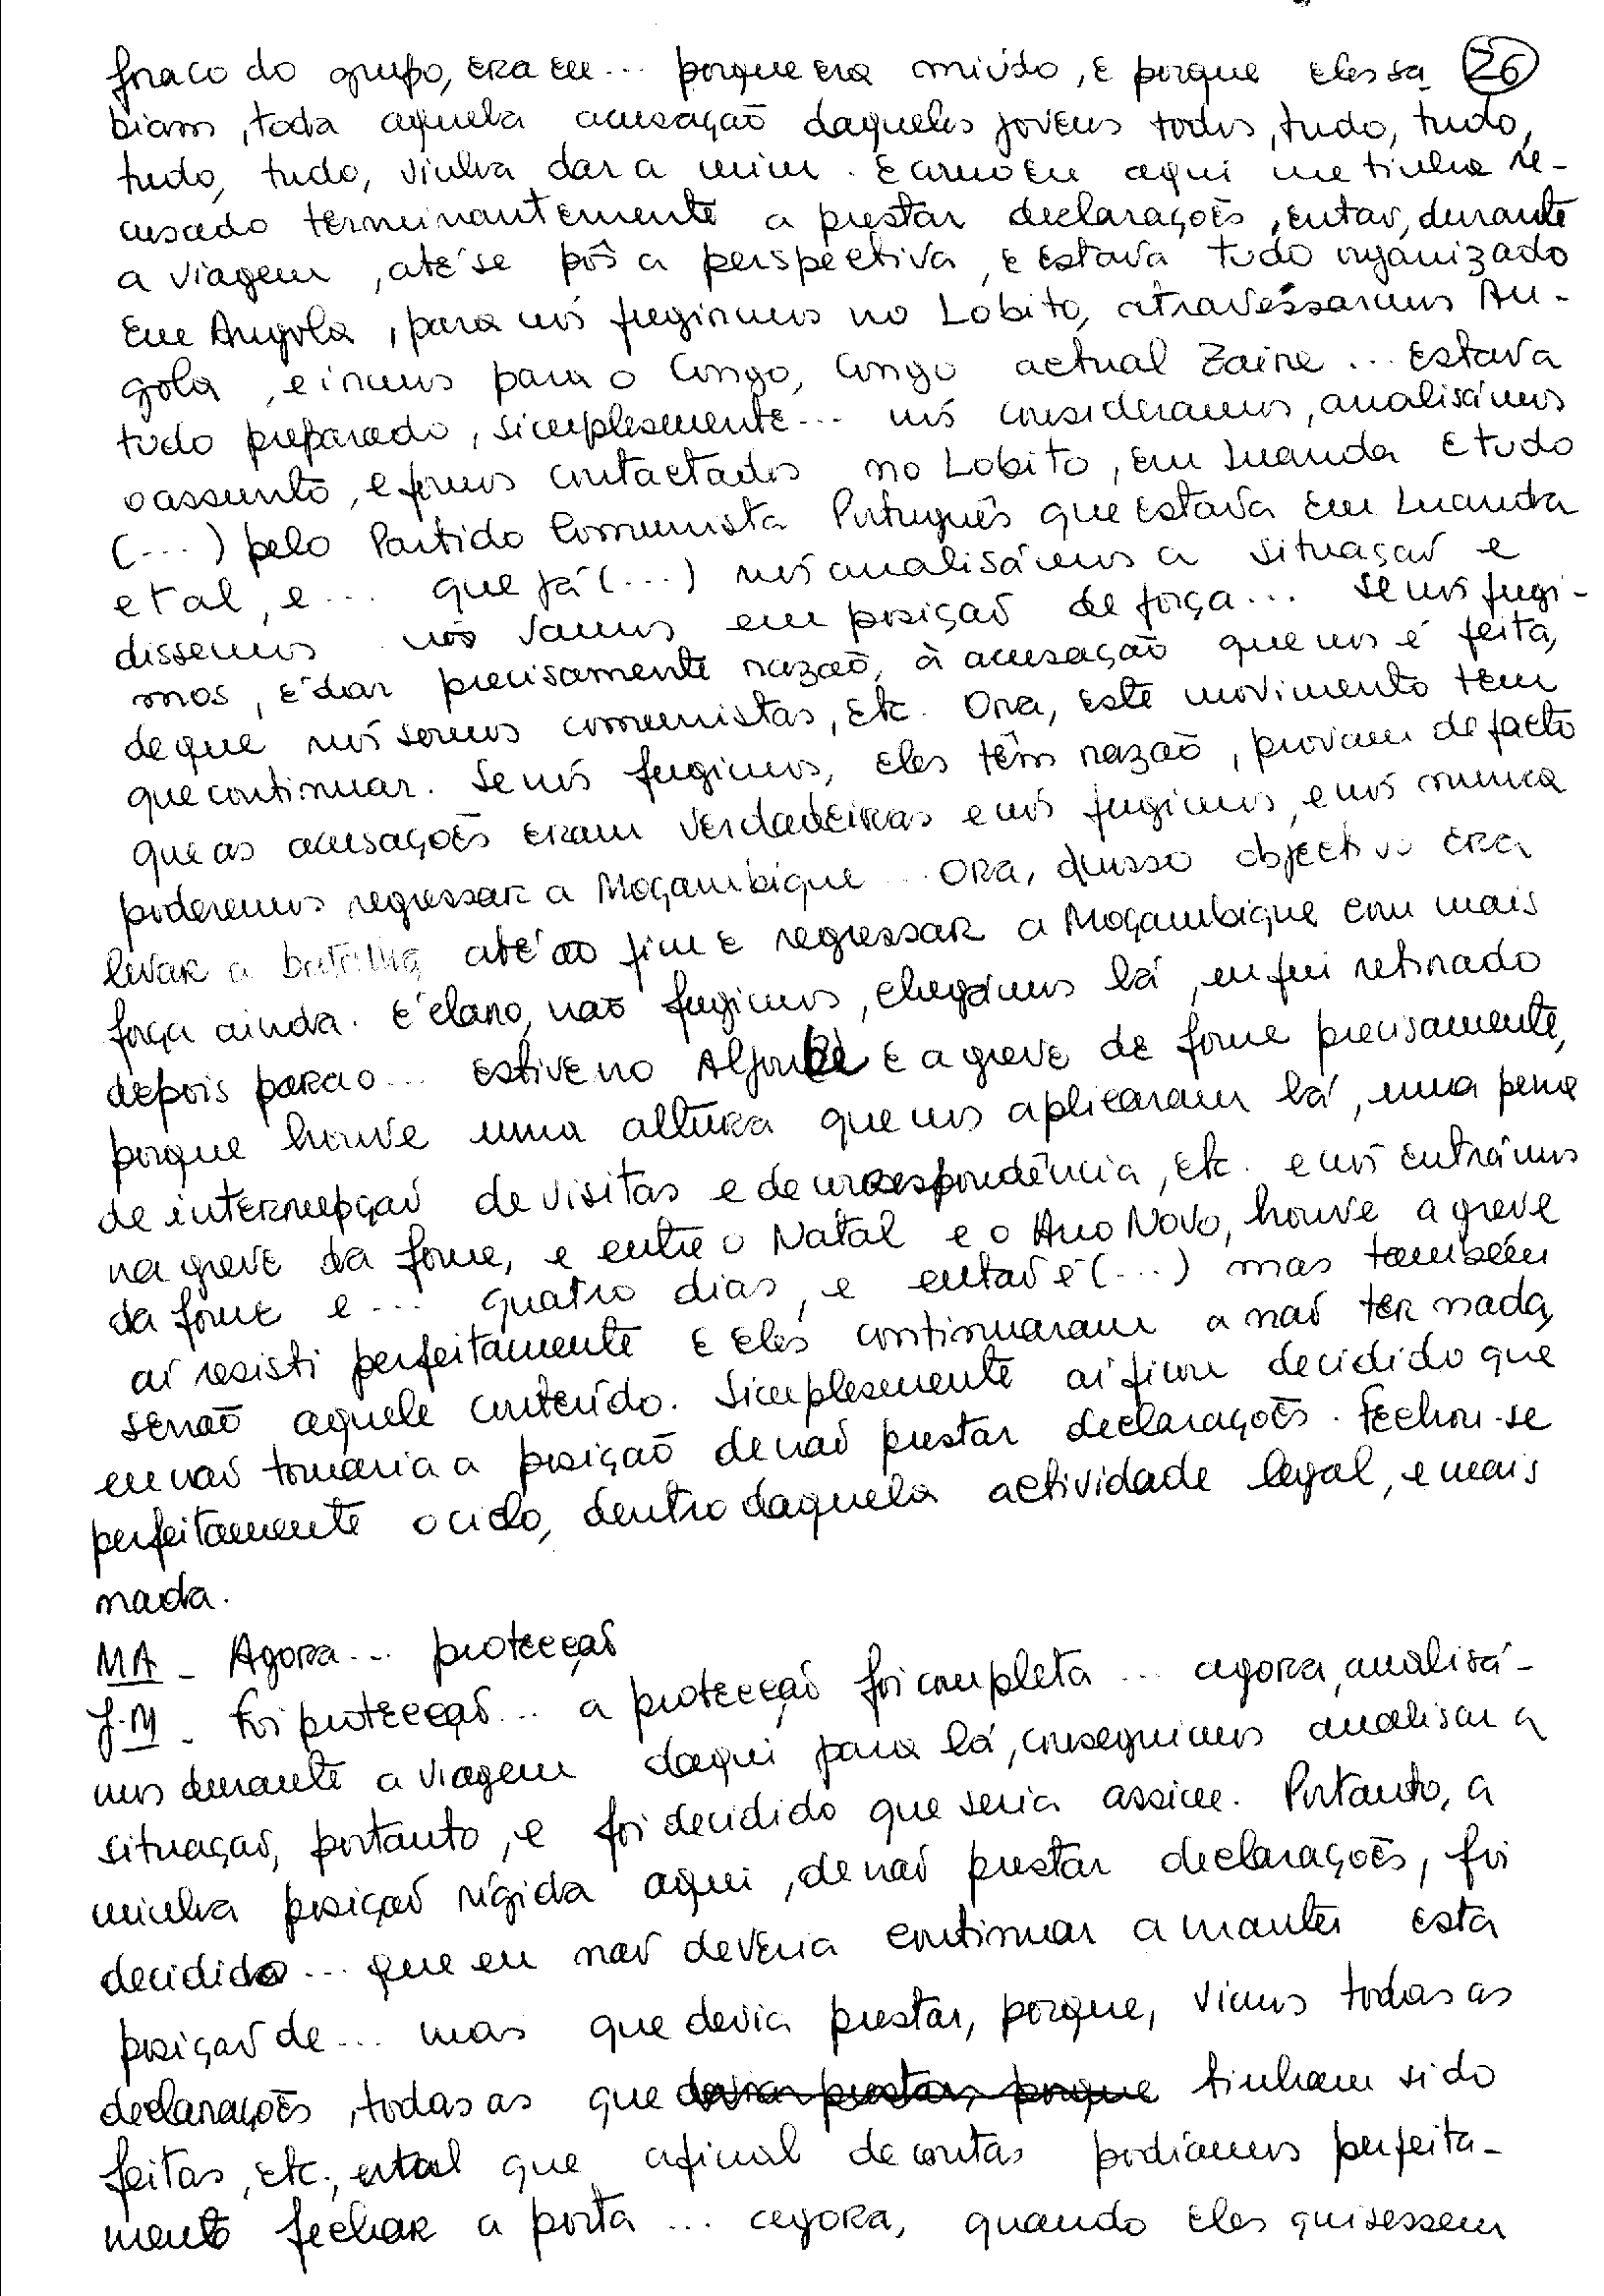 fraco do grupo, era eu... porque era miúdo, e porque eles sa- 26
biam, toda aquela acusação daqueles jovens todos, tudo, tudo,
tudo, tudo, vinha dar a mim. E como eu aqui me tinha re-
cusado terminantemente a prestar declarações, então, durante
a viagem, até se pôs a perspectiva, e estava tudo organizado
em Angola, para nós fugirmos no Lobito, atravéssarmos An-
gola, e irmos para o Congo, Congo actual Zaire... Estava
tudo preparado, simplesmente... nós consideramos, analisámos
o assunto, e fomos contactados no Lobito, em Luanda e tudo
(...) pelo Partido Comunista Português que estava em Luanda
e tal, e... que já (...) nós analisámos a situação e
dissemos nós vamos em posição de força... Se nós fugi-
mos, é dar precisamente razão, à acusação que nos é feita,
de que nós somos comunistas, etc. Ora, este movimento tem
que continuar. Se nós fugimos, eles têm razão, provam de facto
que as acusações eram verdadeiras e nós fugimos, e nós nunca
poderemos regressar a Moçambique... Ora, nosso objectivo era
levar a batalha até ao fim e regressar a Moçambique com mais
força ainda. E é claro, não fugimos, chegámos lá, eu fui retirado
depois para o... estive no Aljube e a greve de fome precisamente,
porque houve uma altura que nos aplicaram lá, uma pena
de interrupção de visitas e de correspondência, etc. e nós entrámos
na greve da fome, e entre o Natal e o Ano Novo, houve a greve
da fome e... quatro dias, e então é (...) mas também
aí resisti perfeitamente e eles continuaram a não ter nada,
senão aquele conteúdo. Simplesmente aí ficou decidido que
eu não tomaria a posição de não prestar declarações. Fechou-se
perfeitamente o ciclo, dentro daquela actividade legal, e mais
nada.
MA - Agora... protecção
J.M - Foi protecção... a protecção foi completa... agora, analisá-
mos durante a viagem daqui para lá, conseguimos analisar a
situação, portanto, e foi decidido que seria assim. Portanto, a
minha posição rígida aqui, de não prestar declarações, foi
decidido... que eu não deveria continuar a manter esta
posição de... mas que devia prestar, porque, vimos todas as
declarações, todas as que devia prestar, porque tinham sido
feitas, etc., e tal que afinal de contas podíamos perfeita-
mente fechar a porta... agora, quando eles quisessem